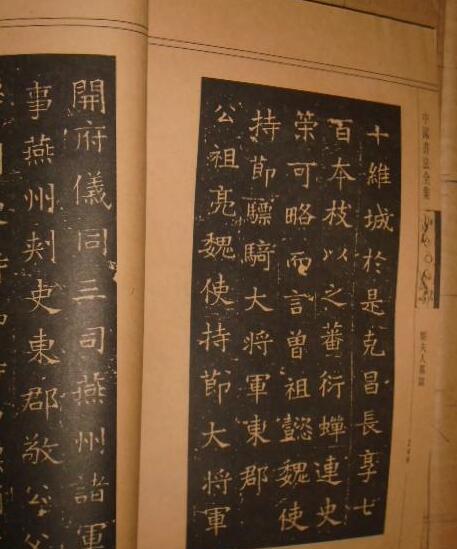 中國書法全集
夫人墓誌
十維城於是克昌長享七
百本枝以之蕃衍蟬連史
策可略而言曾祖懿魏使
持節驃騎大将軍東郡
公祖亮魏使持節大将軍
開府儀同三司燕州諸軍
事燕州刺史東郡敬公父